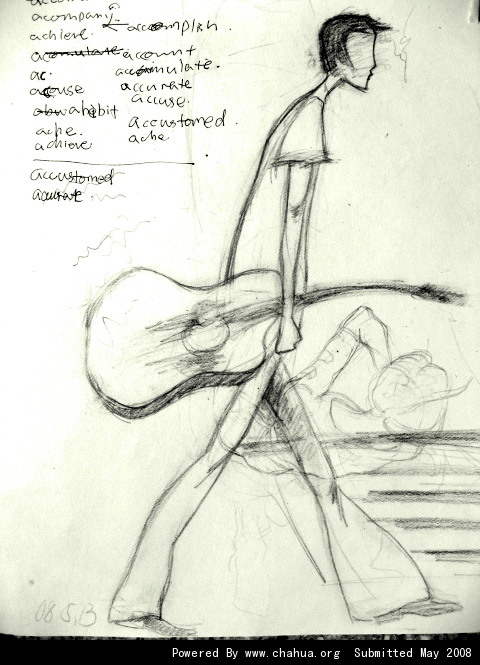 acompany.
achieve. accomplish
acomulate account
ac. accumulate.
acuse accurate
accuse.
abbw ahibit
accustomed.
ache. ache
achieve
accustomed
accurate.
08 5,13
Powered By www.chahua.org Submitted May 2008